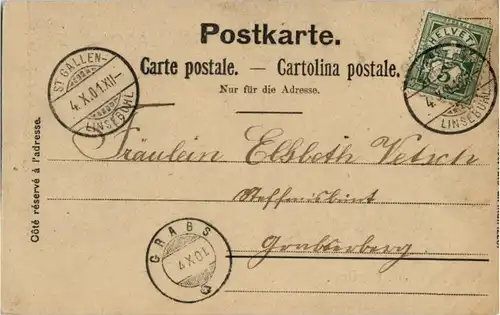 Postkarte.
Carte postale. — Cartolina postale.
Nur für die Adresse.
Côté réservé à l'adresse.
ST. GALLEN-
4.X.01.XII-
LINSEBÜHL
HELVETIA
5
4.
LINSEBÜHL
Fräulein Elsbeth Vetsch
Grabserberg.
GRABS
4 X.01